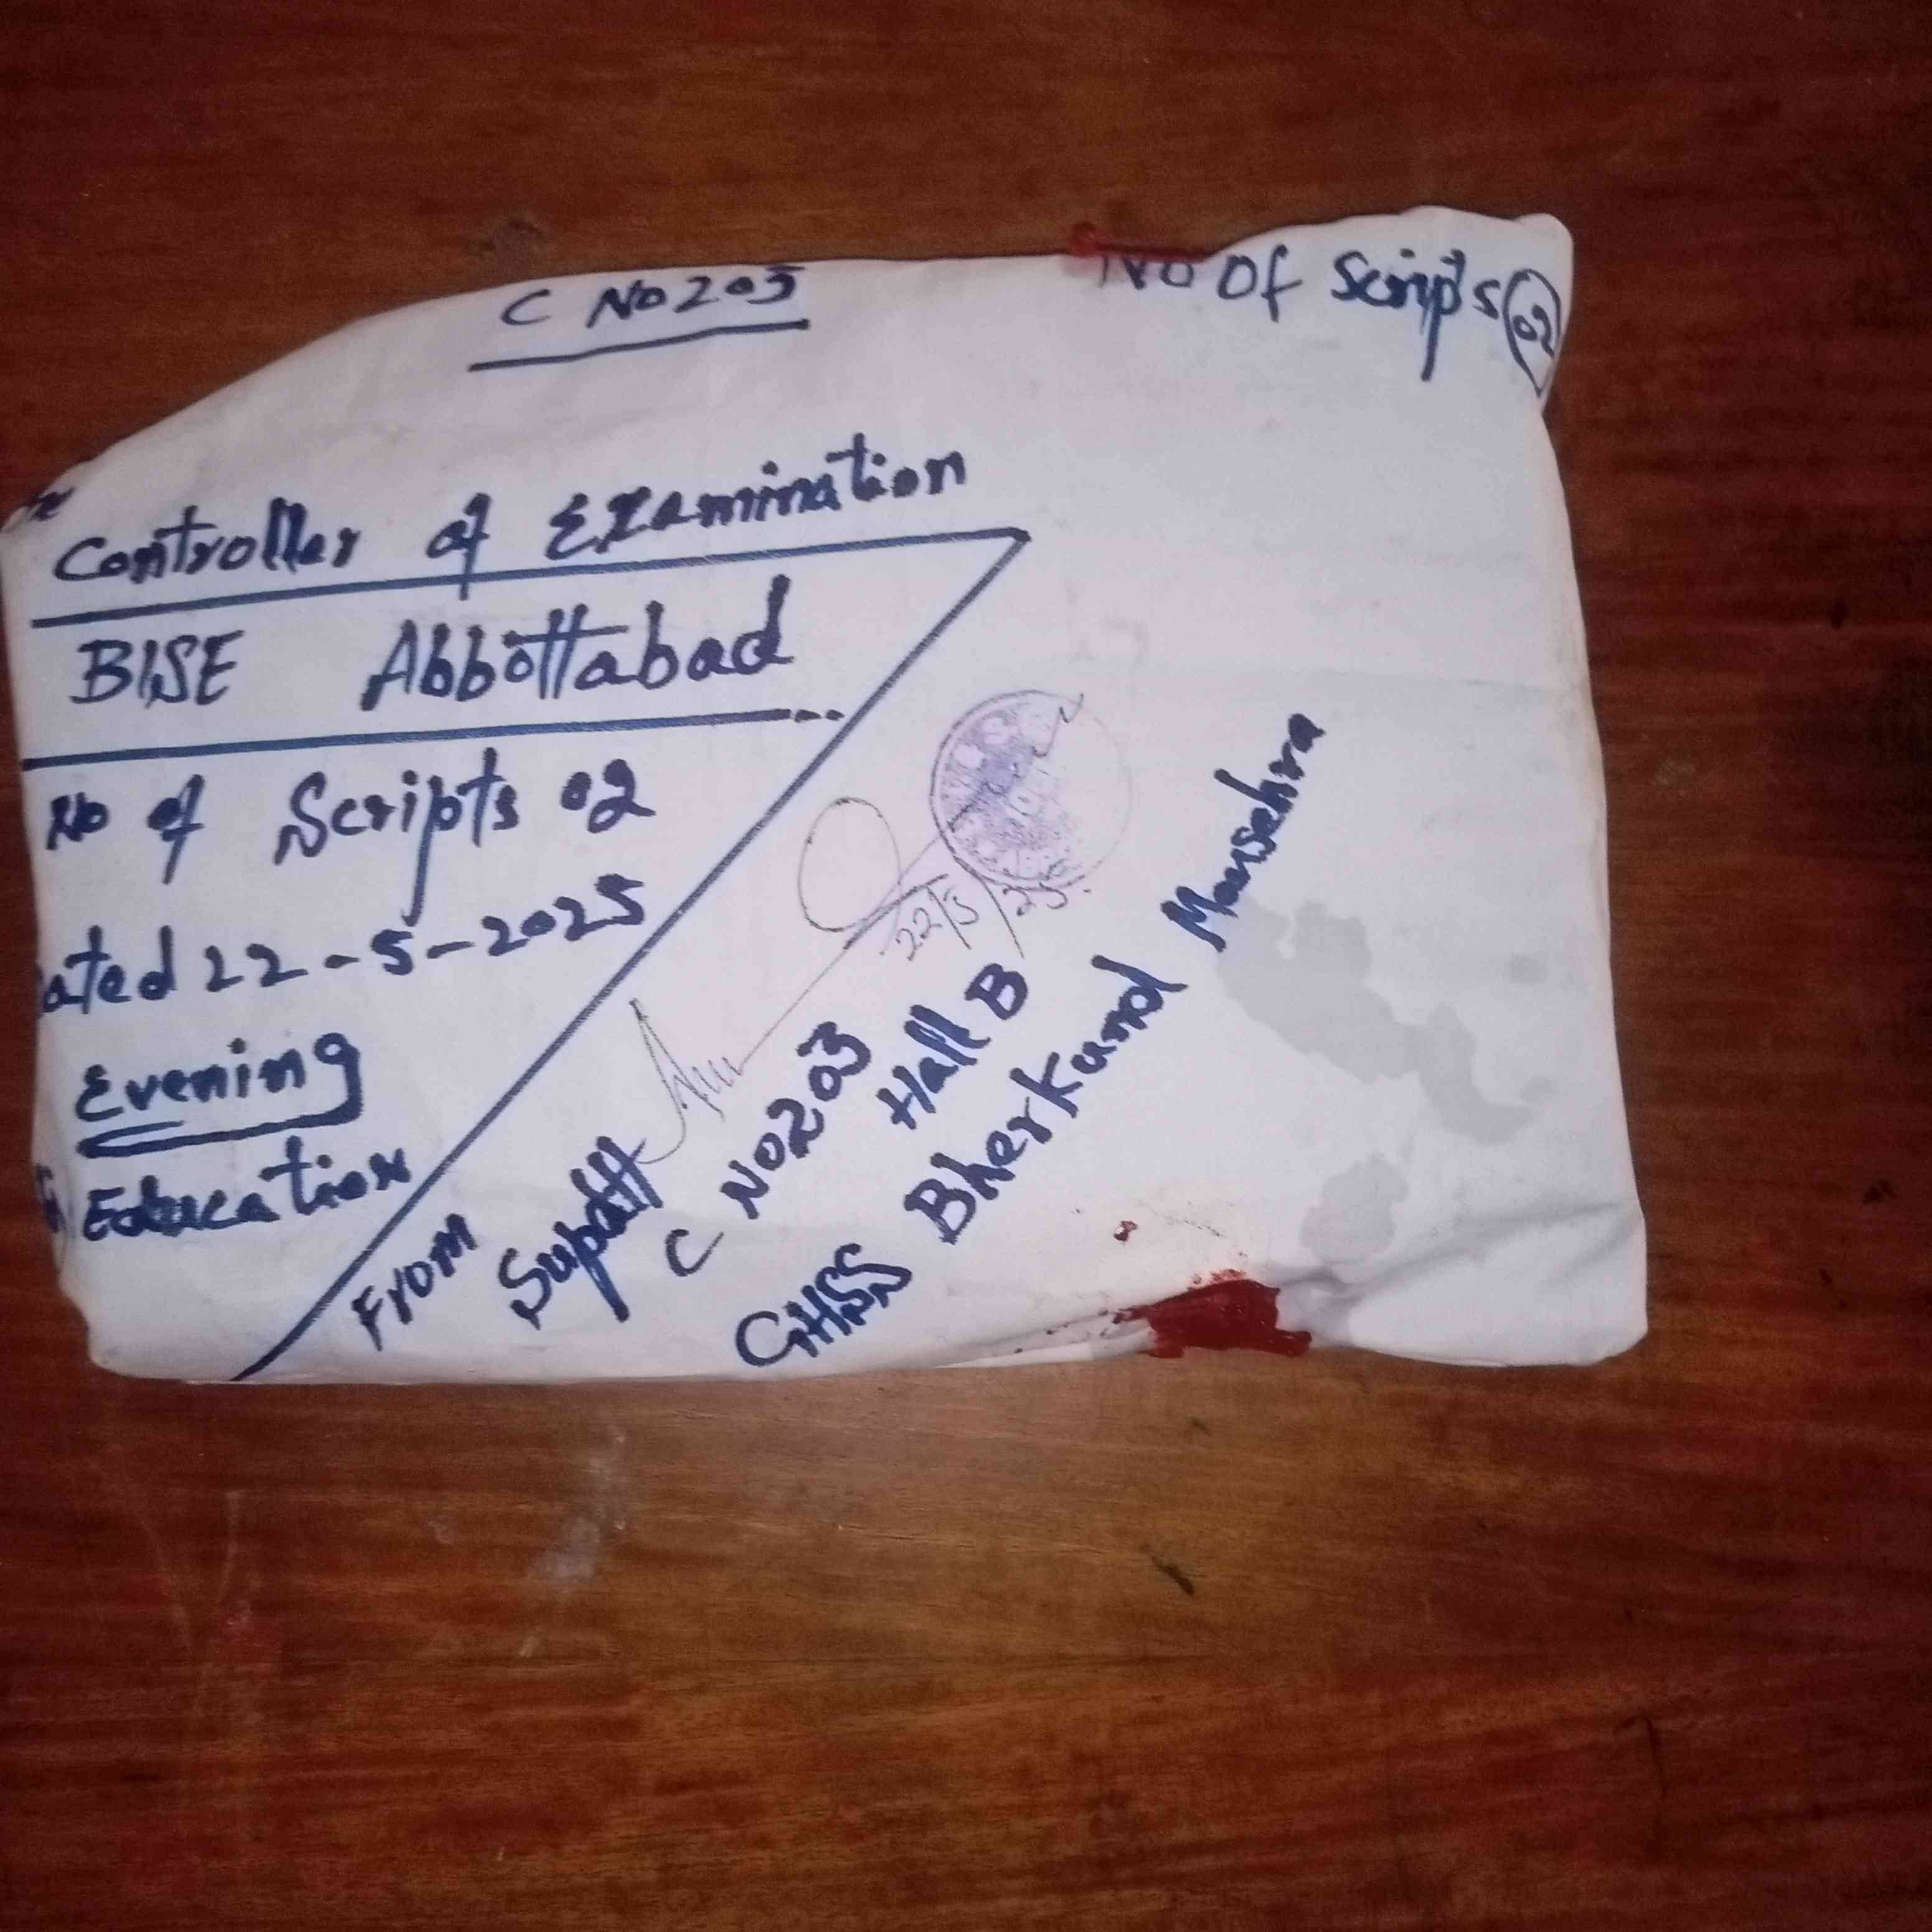 C No 203
No Of Scripts 02
Controller of Examination
BISE Abbottabad
No of Scripts 02
ated 22-5-2025
Evening
Education
22/5/25
From
Supdtt
C No 203
Hall B
GHSS Bherkund Mansehra